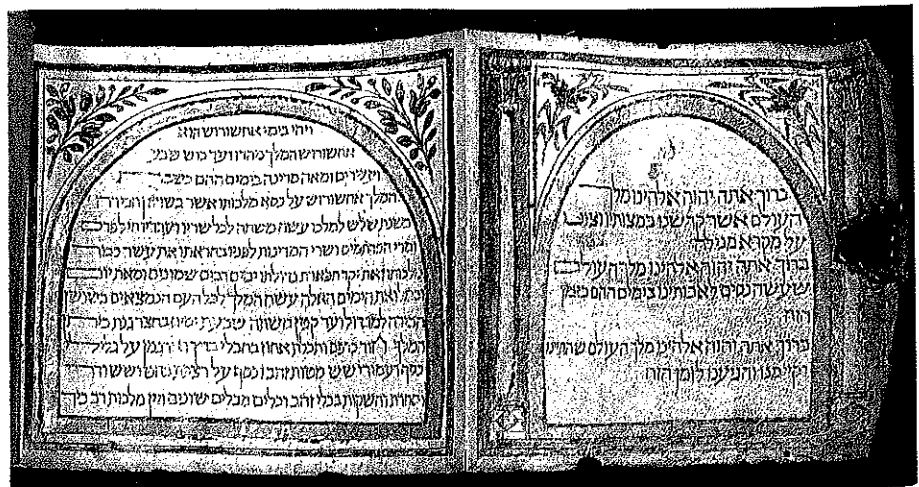 ברוך אתה יהוה אלהינו מלך
העולם אשר קדשנו במצותיו וצונו
על מקרא מגילה
ברוך אתה יהוה אלהינו מלך העולם
שעשה נסים לאבותינו בימים ההם בזמן
הזה
ברוך אתה יהוה אלהינו מלך העולם שהחיינו
וקימנו והגיענו לזמן הזה
ויהי בימי אחשורוש הוא
אחשורוש המלך מהדו ועד כוש שבע
ועשרים ומאה מדינה בימים ההם כשבת
המלך אחשורוש על כסא מלכותו אשר בשושן הבירה
בשנת שלוש למלכו עשה משתה לכל שריו ועבדיו חיל פרס
ומדי הפרתמים ושרי המדינות לפניו בהראתו את עשר כבוד
מלכותו ואת יקר תפארת גדולתו ימים רבים שמונים ומאת יום
ובמלואת הימים האלה עשה המלך לכל העם הנמצאים בשושן
הבירה למגדול ועד קטן משתה שבעת ימים בחצר גנת ביתן
המלך חור כרפס ותכלת אחוז בחבלי בוץ וארגמן על גלילי
כסף ועמודי שש מטות זהב וכסף על רצפת בהט ושש ודר
וסחרת והשקות בכלי זהב וכלים מכלים שונים ויין מלכות רב כיד